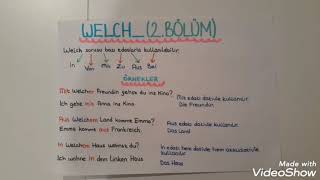 WELCH_ (2.BÖLÜM)
Welch sorusu bazı edatlarla kullanılabilir.
In Von Mit Zu Aus Bei
ÖRNEKLER
Mit Welcher Freundin gehst du ins Kino?
Mit edatı dativle kullanılır.
Ich gehe mit Anna ins Kino
Die Freundin
Aus Welchem Land kommt Emma?
Aus edatı dativle kullanılır.
Emma kommt aus Frankreich.
Das Land
In Welchem Haus wohnst du?
In edatı hem dativle hem akkusativle kullanılır.
Ich wohne in dem linken Haus
Das Haus
Made with
VideoShow